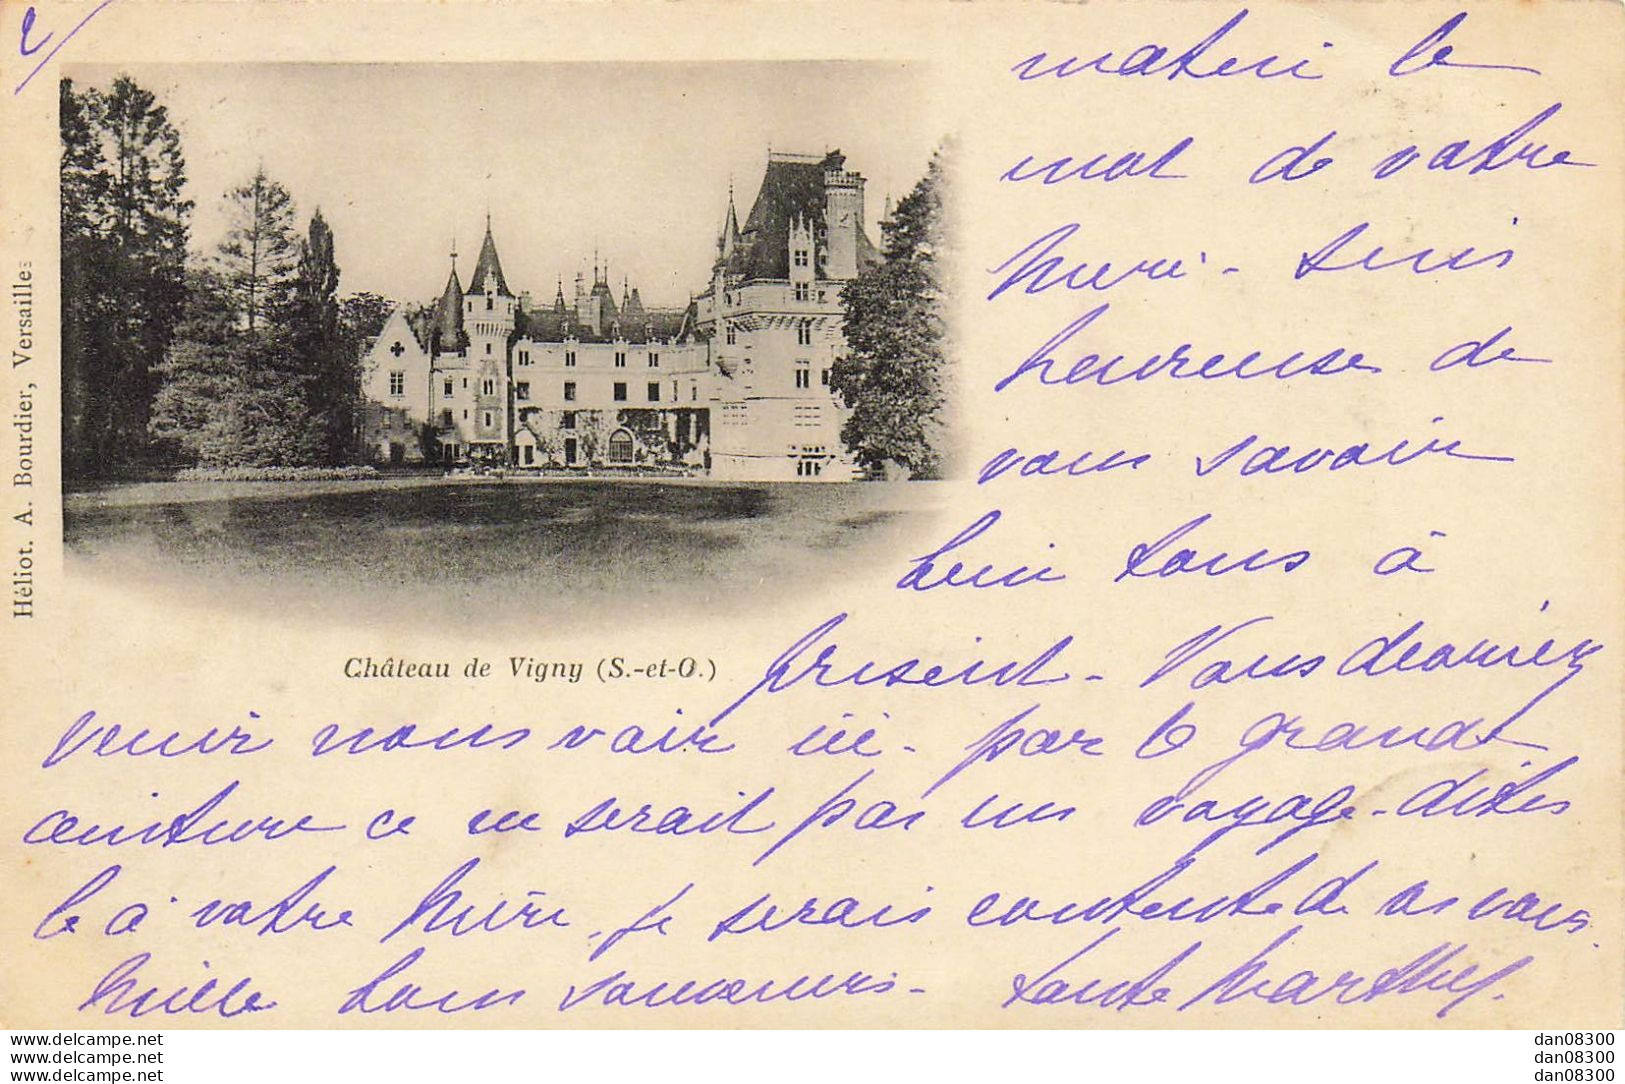 2/
matin le
mot de votre
mère - suis
heureuse de
vous savoir
bien tous à
présent - Vous devriez
venir nous voir ici - par le grand
ceinture ce ne serait pas un voyage - dites
le à votre mère, je serais contente de vous
Mille bons souvenirs - tante Marthe
Héliot. A. Bourdier, Versailles
Château de Vigny (S.-et-O.)
www.delcampe.net
www.delcampe.net
www.delcampe.net
dan08300
dan08300
dan08300